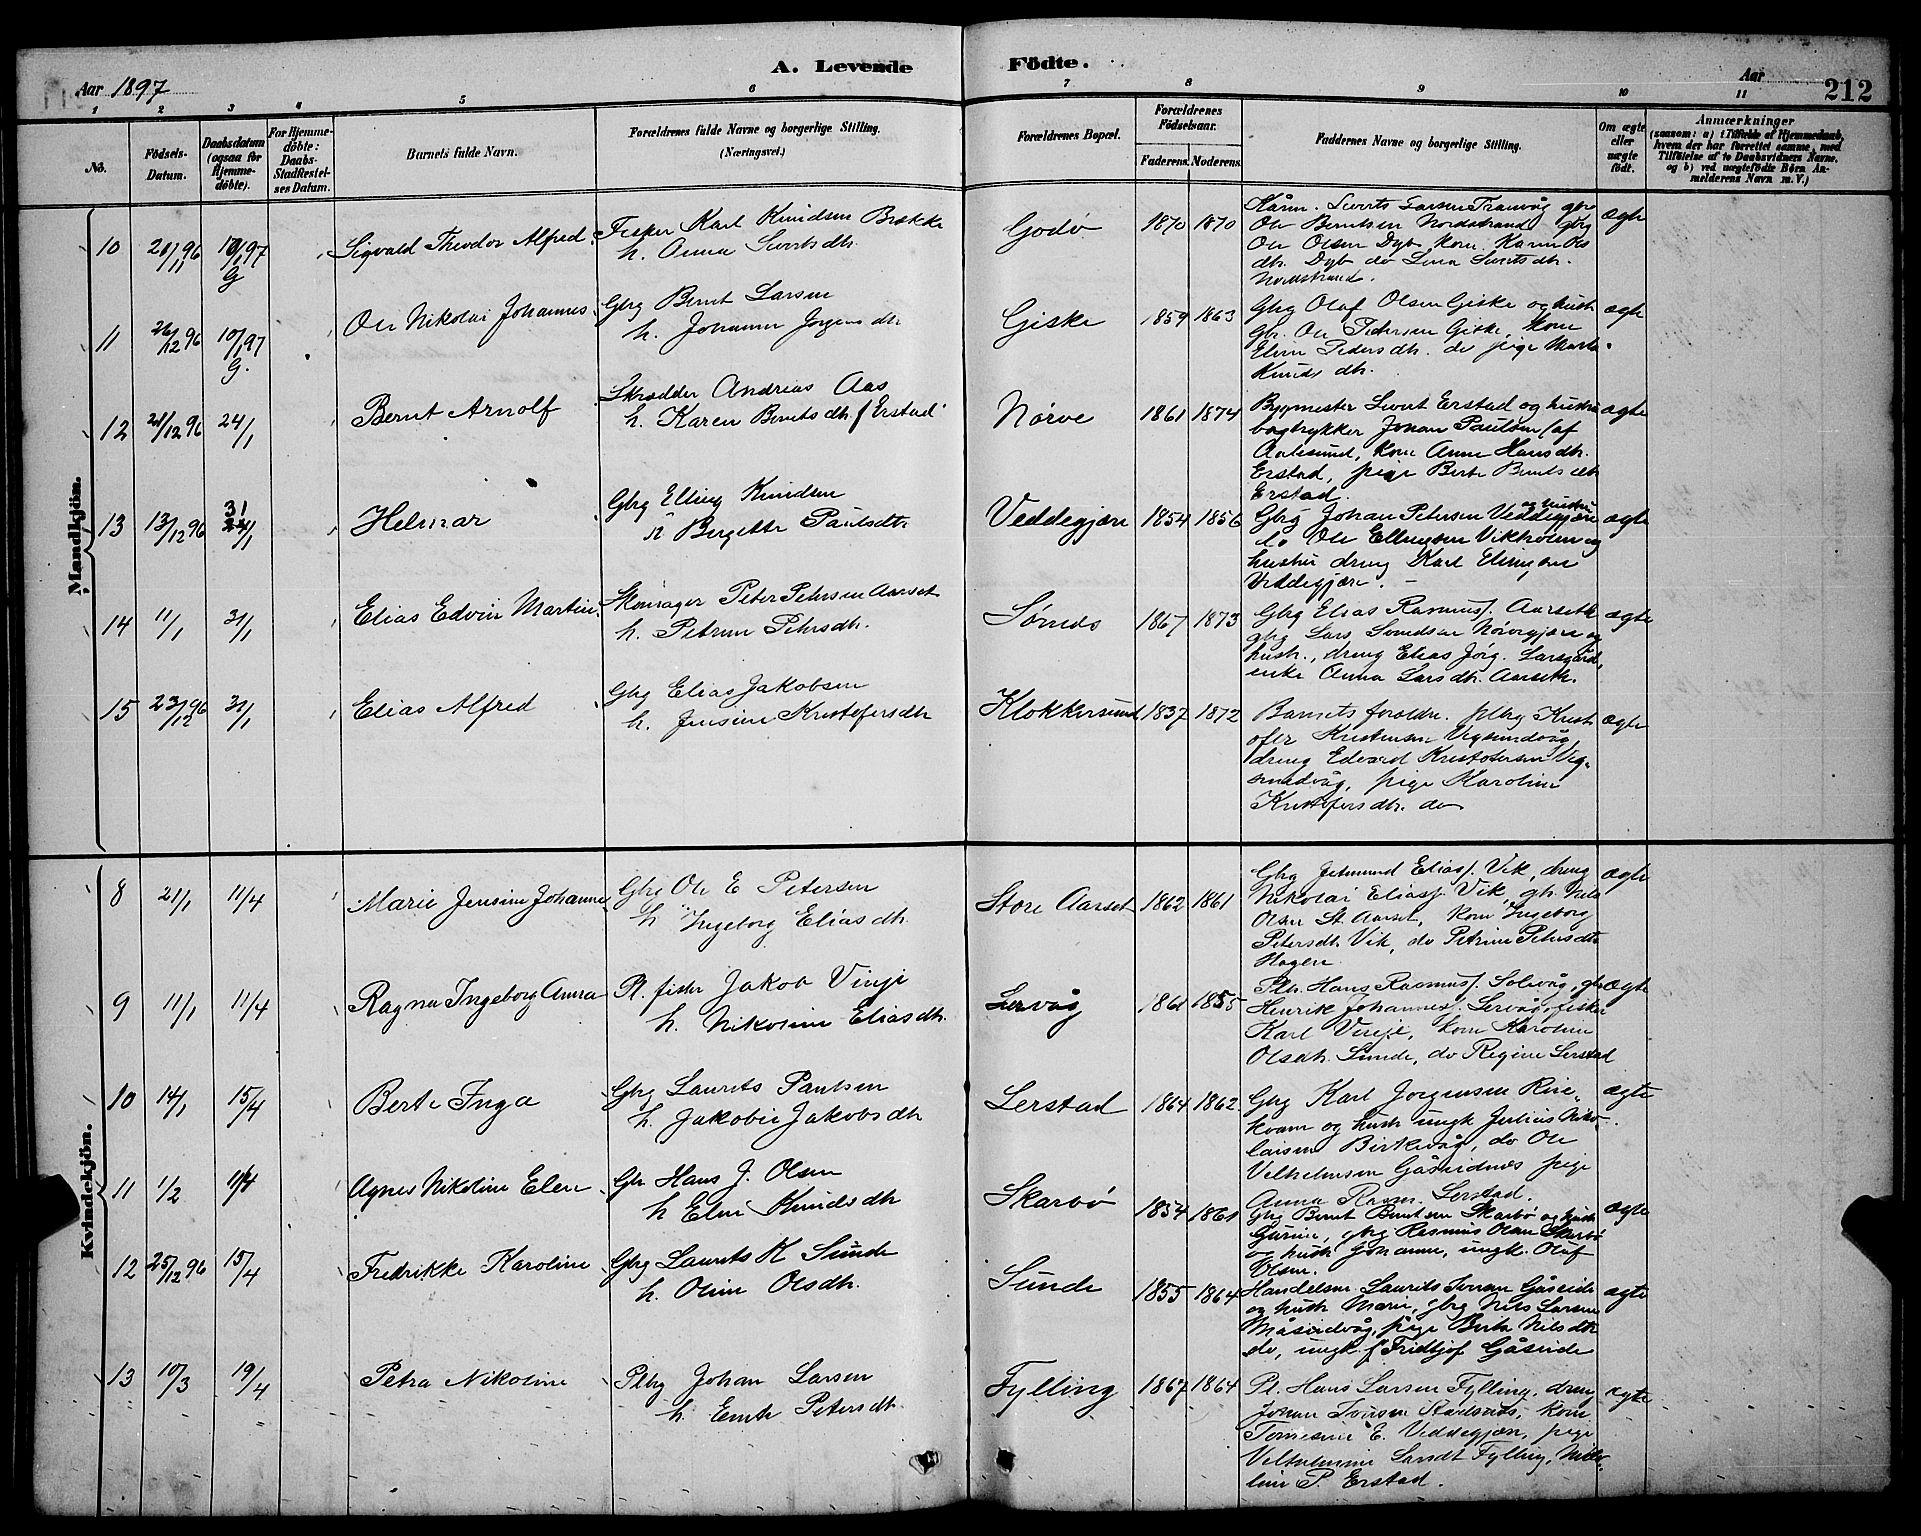 Aar 1897
A. Levende Födte.
Aar
212
1 2 3 4 5 6 7 8 9 10 11
No.
Födsels-Datum.
Daabsdatum (ogsaa for Hjemme-döbte).
For Hjemme-döbte: Daabs-Stadfæstel-ses Datum.
Barnets fulde Navn.
Forældrenes fulde Navne og borgerlige Stilling. (Næringsvei.)
Forældrenes Bopæl.
Forældrenes Födselsaar.
Faderens. Moderens.
Faddernes Navne og borgerlige Stilling.
Om ægte eller uægte födt.
Anmærkninger
(saasom: a) i Tilfælde af Hjemmedaab, hvem der har forrettet samme, med Tilföielse af to Daabsvidners Navne, og b) ved uægtefödte Börn An-melderens Navn m. V.)
Mandkjön.
10 21/11 96 10/1 97 G Sigvald Theodor Alfred Fisker Karl Knudsen Brække
h. Anna Sivertsdh. Godø 1870 1870 ægte
Ole Berntsen Nordstrand, gbrg
Ole Olsen Dyb, kone Karen Ols
dh. Dyb do Lina Sivertsdh.
Nordstrand.
11 26/12 96 10/1 97 G. Ole Nikolai Johannes Gbrg Bernt Larsen
h. Johanne Jørgensdh Giske 1859 1863 ægte
Gbrg Olaf Olsen Giske og hustr
Gbr. Ole Pedersen Giske, kone
Eline Pedersdh. do pige Marta
Knudsdh.
12 21/12 96 24/1 Bernt Arnolf Skrædder Andreas Aas
h. Karen Berntsdh. f Erstad Nørve 1861 1874 ægte
Bygmester Sivert Erstad og hustru
bogtrykker Johan Paulsen (af
Aalesund, kone Anne Hansdh.
Erstad, pige Berte Berntsdh
Erstad.
13 13/12 96 31/1 Helmar Gbrg Elling Knudsen
h Bergitte Paulsdtr Veddegjære 1854 1856 ægte
Gbrg Johan Petersen Veddegjære og hustru
do Ole Ellingsen Vikholen og
hustru dreng Karl Elingsen
Veddegjære.
14 11/1 31/1 Elias Edvin Martin Skomager Peter Petersen Aarset
h. Petrine Petersdh. Sørnes 1867 1873 ægte
Gbrg Elias Rasmus. Aarseth
gbrg Lars Knudsen Nørvegjære og
hustr., dreng Elias Jörg. Larsgård,
enke Anna Larsdh. Aarseth.
15 23/12 96 31/1 Elias Alfred Gbrg Elias Jakobsen
h. Jensine Kristofersdh Klokkersund 1837 1872 ægte
Barnets foreldre. plbrg Krist
ofer Kristensen Vegsundvåg
dreng Edvard Kristofersen Veg-
sundvåg, pige Karoline
Kristofersdh. do
Kvindekjön.
8 21/1 11/4 Marie Jensine Johanne Gbrg Ole E Petersen
h Ingeborg Eliasdh. Store Aarset 1862 1861 ægte
Gbrg Jetmund Elias. Vik, dreng
Nikolai Elias. Vik, gbr. Nils
Olsen St. Aarset, kone Ingeborg
Petersdh. Vik, do Petrine Petersdh
Hagen
9 11/1 11/4 Ragna Ingeborg Anna Pl. fisker Jakob Vinje
h. Nikoline Eliasdh. Lervåg 1861 1855 ægte
Plb. Hans Rasmus. Solevåg, gbr
Henrik Johannes. Lervåg, fisker
Karl Vinje, kone Karoline
Olsdh. Sunde, do Regine Lerstad
10 14/1 15/4 Berte Inga Gbrg Laurits Paulsen
h. Jakobie Jakobsdh Lerstad 1864 1862 ægte
Gbrg Karl Jørgensen Rise-
kvam og hustr ungk Julius Niko-
laisen Birkevåg, do Ole
Velhelmsen Gåseidnes pige
Anna Rasm. Lerstad.
11 1/2 11/4 Agnes Nikoline Elen Gbr Hans J. Olsen
h Eline Knudsdh Skarbø 1854 1861 ægte
Gbrg Bernt Berntsen Skarbø og hustr
Gurine, gbrg Rasmus Olsen Skarbø
og hustr Johanne, ungk. Oluf
Olsen.
12 25/12 96 15/4 Fredrikke Karoline Gbrg Laurits K Sunde
h. Oline Olsdh. Sunde 1855 1864 ægte
Handelsm. Laurits Gåseide
og hustr Marie, gbrg Nils Larsen
Måseidvåg, pige Berte Nilsdh
do, ungk. Fridtjof Gåseide
13 10/3 19/4 Petra Nikoline Plbrg Johan Larsen
h. Emte Petersdh Fylling 1867 1864 ægte
Pl. Hans Larsen Fylling, dreng
Johan Karlsnes, kone
E. Veddegjære, pige
Velhelmine Larsdt Fylling, Niko-
line P. Erstad.